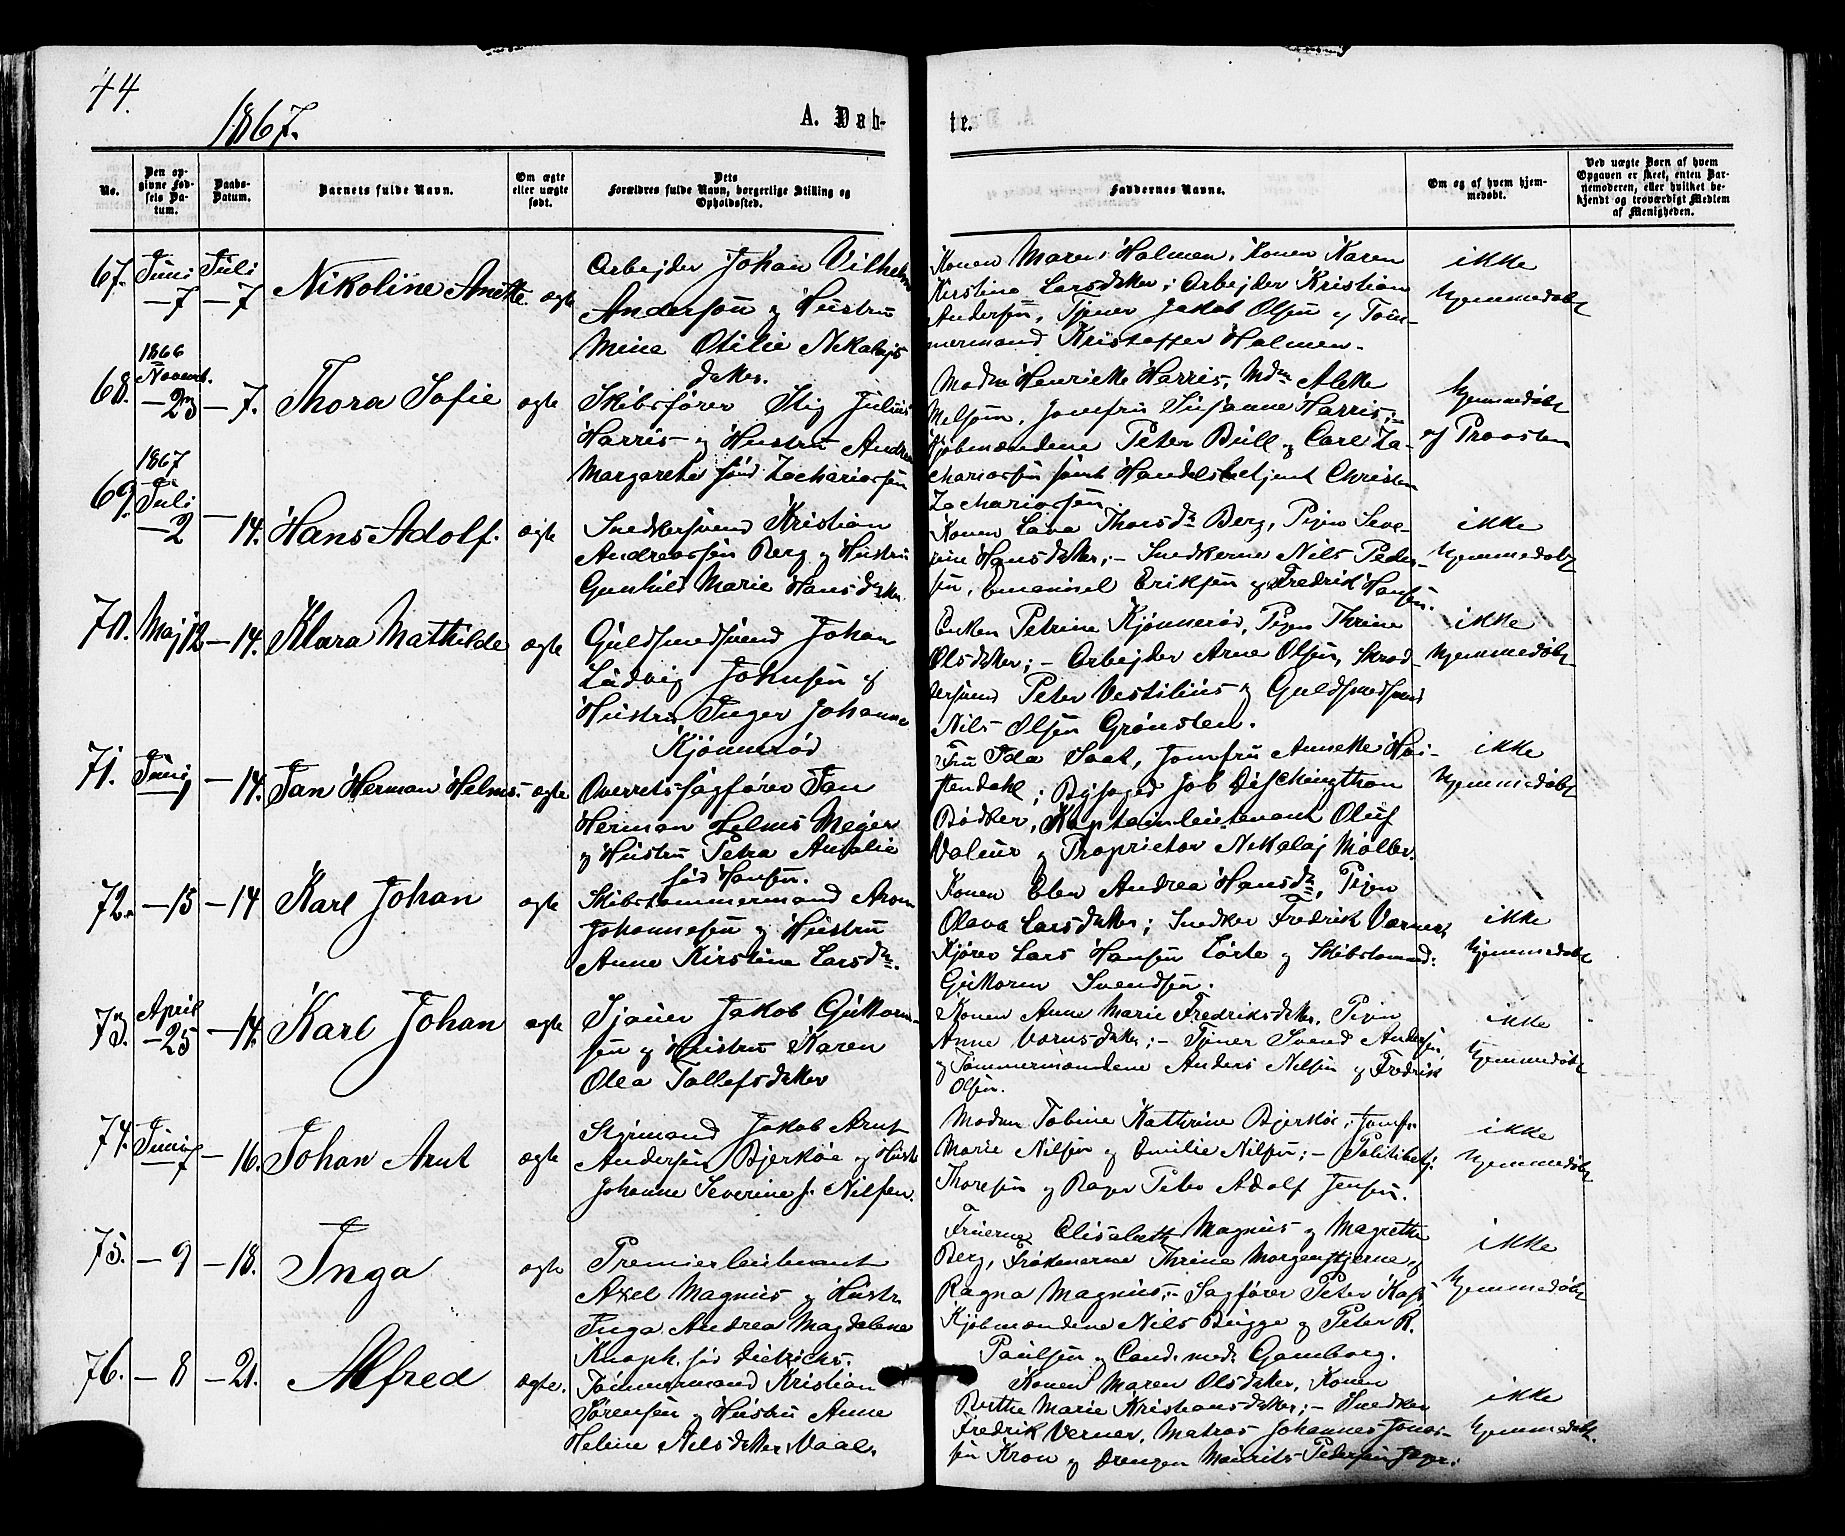 44.
1867.
A. Døb-
te.
No.
Den op-
givne Fød-
sels Da-
tum.
Daabs-
Datum.
Barnets fulde Navn.
Om ægte
eller uægte
født.
Dets
Forældres fulde Navn, borgerlige Stilling og
Opholdssted.
Faddernes Navne.
Om og af hvem hjem-
medøbt.
Ved uægte Børn af hvem
Opgaven er skeet, enten Bar-
nemoderen, eller hvilket be-
kjendt og troværdigt Medlem
af Menigheden.
67. Juni
— 7
Juli
— 7
Nikoline Anette
ægte
Arbejder Johan Vilhelm
Andersøn og Hustru
Mine Otilie Nikolajs
datter.
Konen Maren Holmen, Konen Karen
Kirstine Larsdatter; Arbejder Kristian
Andersen, Tjener Jakob Olsen og Tøm-
mermand Kristoffer Holmen.
ikke
hjemmedøbt
68. 1866
Novemb.
— 23
— 7.
Thora Sofie
ægte
Skibsfører Stig Julius
Harris og Hustru Andrea
Margarete fød Zachariassen
Madm Henriette Harris, Mdm
Nielsøn, Jomfru Susanne Harris;
Kjøbmændene Peter Bull og Carl Za-
chariassen samt Handelsbetjent Christen
Zachariassen.
hjemmedøbt
af Provsten
69. 1867
Juli
— 2
— 14.
Hans Adolf.
ægte
Snedkersvend Kristian
Andreassen Berg og Hustru
Gunhild Marie Hansdatter
Konen Lava Thorsdtr Berg, Pigen Seve-
rine Hansdatter; — Snedkerne Nils Peder-
sen, Emanuel Eriksen og Fredrik Hansen.
ikke
hjemmedøbt
70. Maj 12 — 14.
Klara Mathilde
ægte
Guldsmedsvend Johan
Ludvig Johnsen og
Hustru Inger Johanne
Kjønnerød
Enken Petrine Kjønnerød, Pigen Thrine
Olsdatter; — Arbejder Arne Olsen, Skræd-
dersvend Peter Vestilius og Guldsmedsvend
Nils Olsen Grønsten.
ikke
hjemmedøbt
71. Juni
— 14.
Jan Herman Helms.
ægte
Overretssagfører Jan
Herman Helms Mejer
og Hustru Petra Amalie
fød Hansen.
Fru Ida Saat, Jomfru Annette Høi-
stendahl; Byfoged Job Dischingthon
Bødker, Kaptainleutenant Oluf
Valeur og Proprietær Nikolaj Møller.
ikke
hjemmedøbt
72. — 15 — 14
Karl Johan
ægte
Skibstømmermand Aron
Johannesen og Hustru
Anne Kirstine Larsdtr.
Konen Elen Andrea Hansdtr, Pigen
Olava Larsdatter; Snedker Fredrik Værner,
Kjører Lars Hansen Lørte og Skibstømmd:
Guttorm Svendsen.
ikke
hjemmedøbt
73. April
— 25
— 14.
Karl Johan
ægte
Sjauer Jakob Guttorm-
sen og Hustru Karen
Olea Tollefsdatter
Konen Anne Marie Fredriksdatter, Pigen
Anne datter; — Tjener Svend Andersen,
og Tømmermændene Anders Nilsen og Fredrik
Olsen.
ikke
hjemmedøbt
74. Juni
— 7
— 16.
Johan Arnt
ægte
Styrmand Jakob Arnt
Andersen Bjerkøe og Hustr
Johanne Severine f. Nilsen.
Madm Tobine Kathrine Bjerkøe, Jomfr
Marie Nilsen og Emilie Nilsen; — Politibetj:
Thoresen og Bager Peter Adolf Jensen.
ikke
hjemmedøbt
75. — 9 — 18.
Inga
ægte
Premierleutenant
Axel Magnus og Hustr
Inga Andrea Magdelene
Knoph. fød Dietrichs.
Fruerne Elisabeth Magnus og Magrethe
Berg, Frøknerne Thrine Morgenstjerne og
Ragna Magnus; — Sagfører Peter Kass,
Kjøbmændene Nils Bugge og Peter R.
Paulsen og Cand. med. Gamborg.
ikke
hjemmedøbt
76. — 8 — 21.
Alfred
ægte.
Tømmermand Kristian
Sørensen og Hustru Anne
Helene Nilsdatter Vaal.
Konen Maren Olsdatter, Konen
Berthe Marie Kristiansdatter; — Snedker
Fredrik Verner, Matros Johannes Jonas-
sen Kron og Drengen Maurits Pedersen
ikke
hjemmedøbt.